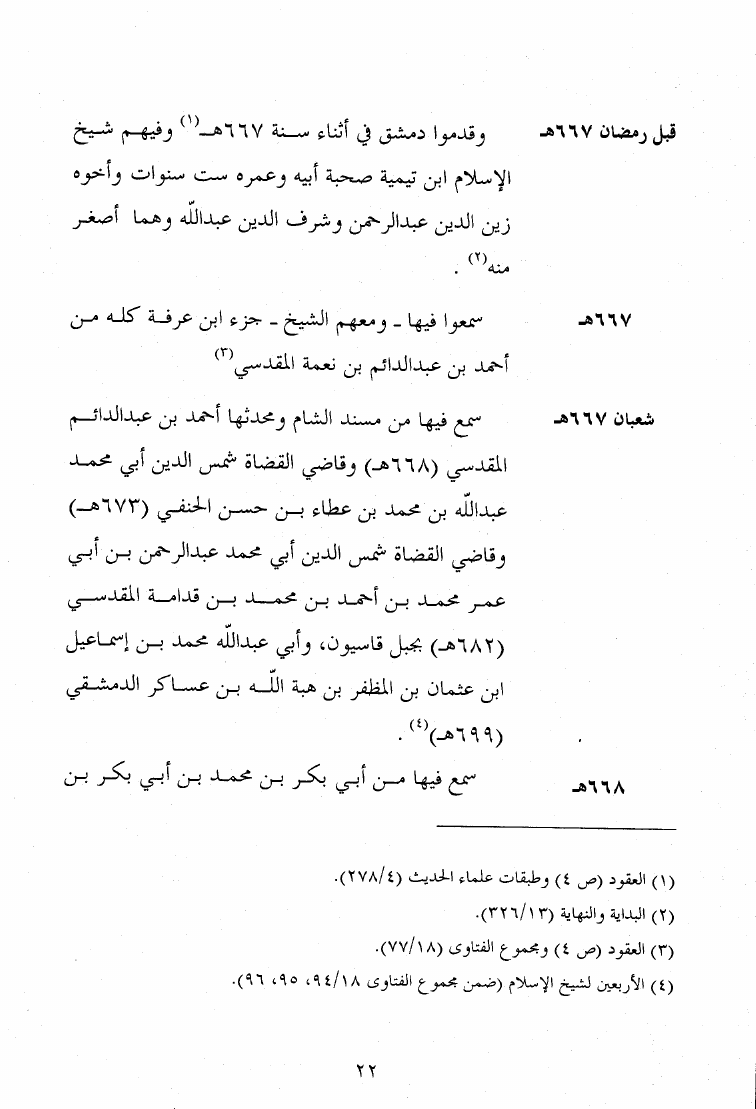 قبل رمضان ٦٦٧هـ وقدموا دمشق في أثناء سنة ٦٦٧هـ(١) وفيهم شيخ
الإسلام ابن تيمية صحبة أبيه وعمره ست سنوات وأخوه
زين الدين عبدالرحمن وشرف الدين عبدالله وهما أصغر
منه(٢) .
٦٦٧هـ سمعوا فيها - ومعهم الشيخ - جزء ابن عرفة كله من
أحمد بن عبدالدائم بن نعمة المقدسي(٣)
شعبان ٦٦٧هـ سمع فيها من مسند الشام ومحدثها أحمد بن عبدالدائم
المقدسي (٦٦٨هـ) وقاضي القضاة شمس الدين أبي محمد
عبدالله بن محمد بن عطاء بن حسن الحنفي (٦٧٣هـ)
وقاضي القضاة شمس الدين أبي محمد عبدالرحمن بن أبي
عمر محمد بن أحمد بن محمد بن قدامة المقدسي
(٦٨٢هـ) بجبل قاسيون، وأبي عبدالله محمد بن إسماعيل
ابن عثمان بن المظفر بن هبة الله بن عساكر الدمشقي
(٦٩٩هـ)(٤) .
٦٦٨هـ سمع فيها من أبي بكر بن محمد بن أبي بكر بن
(١) العقود (ص ٤) وطبقات علماء الحديث (٢٧٨/٤).
(٢) البداية والنهاية (٣٢٦/١٣).
(٣) العقود (ص ٤) ومجموع الفتاوى (٧٧/١٨).
(٤) الأربعين لشيخ الإسلام (ضمن مجموع الفتاوى ٩٤/١٨، ٩٥، ٩٦).
٢٢